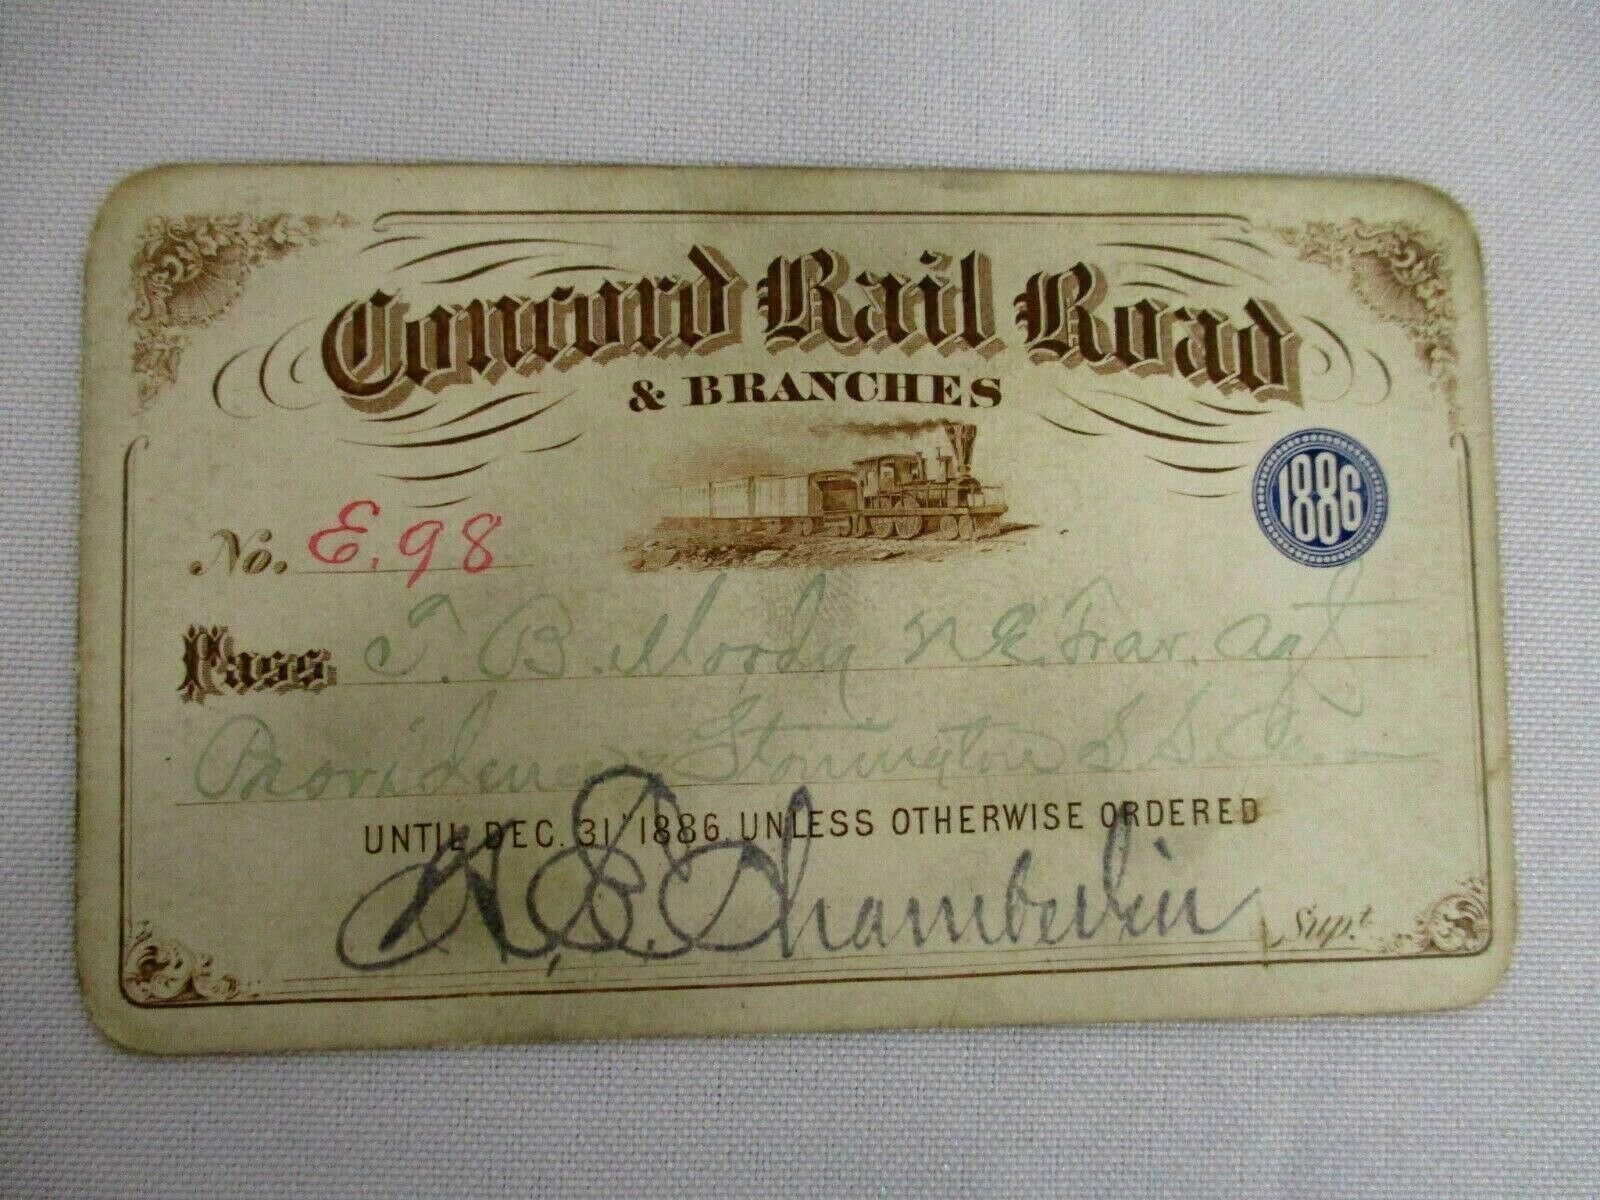 Concord Rail Road
& BRANCHES
1886
No. E. 98
Pass B. Moody N. E. Trav. Agt
Providence Stonington S. S. Co.
UNTIL DEC. 31 1886 UNLESS OTHERWISE ORDERED
H. E. Chamberlin Supt.